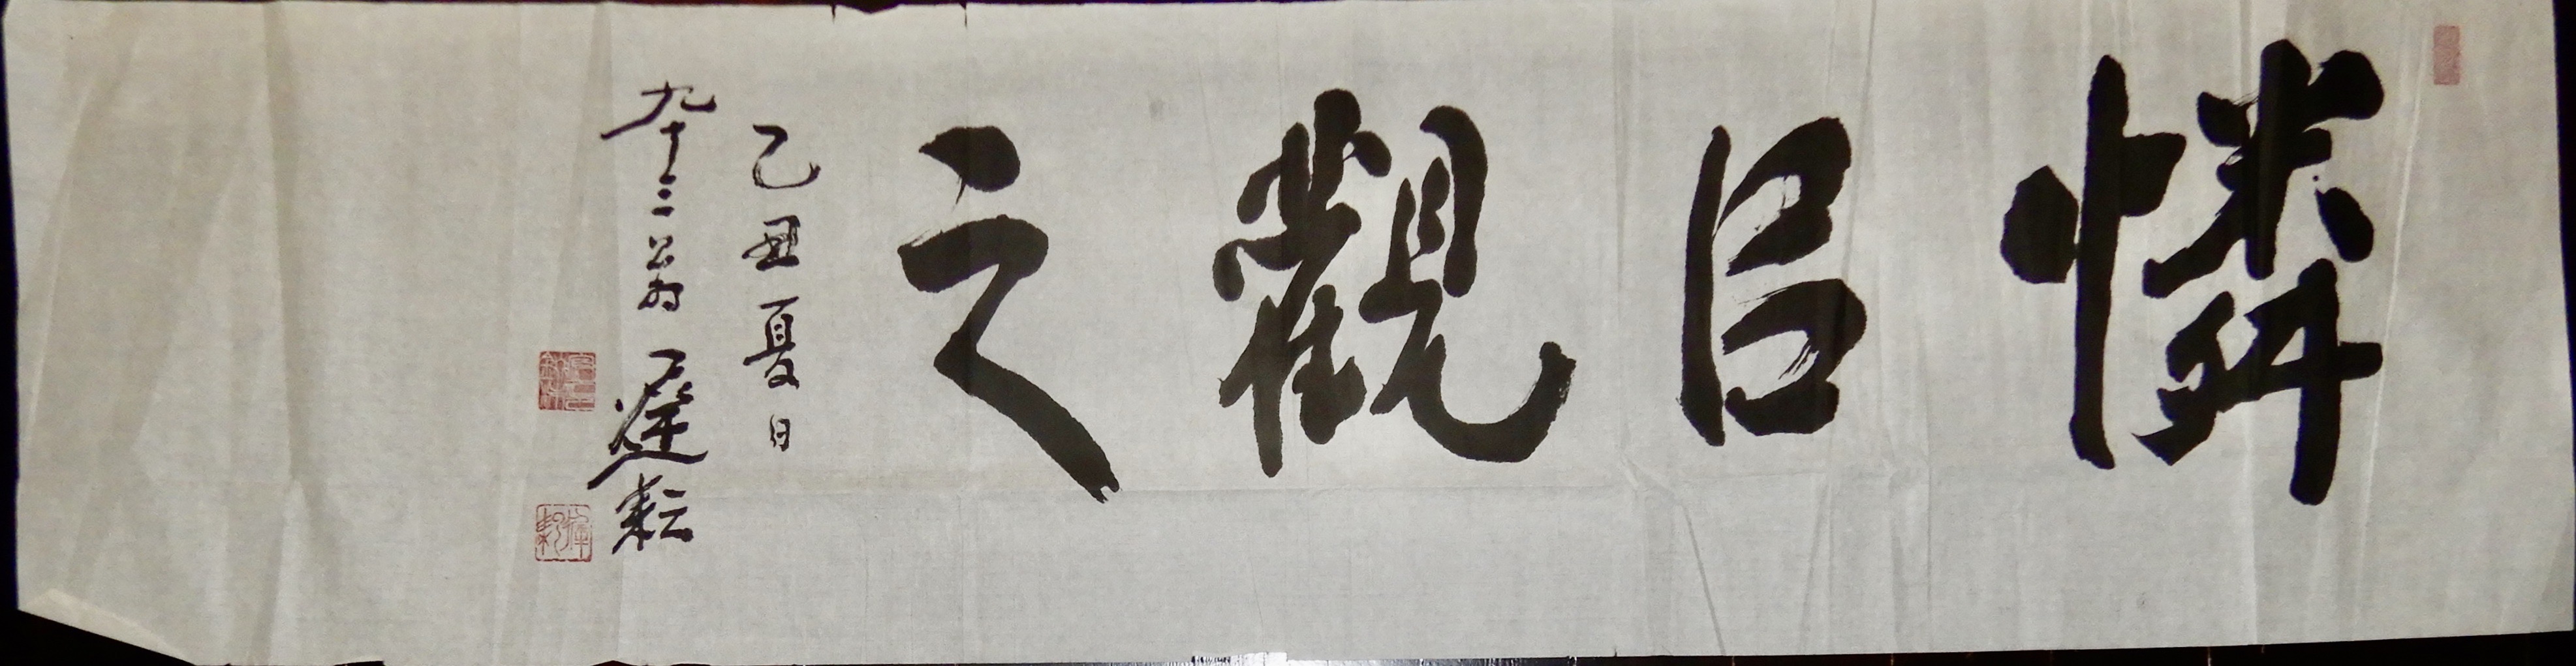 憐㠯觀之
乙丑夏日
九十二翁 遲耘